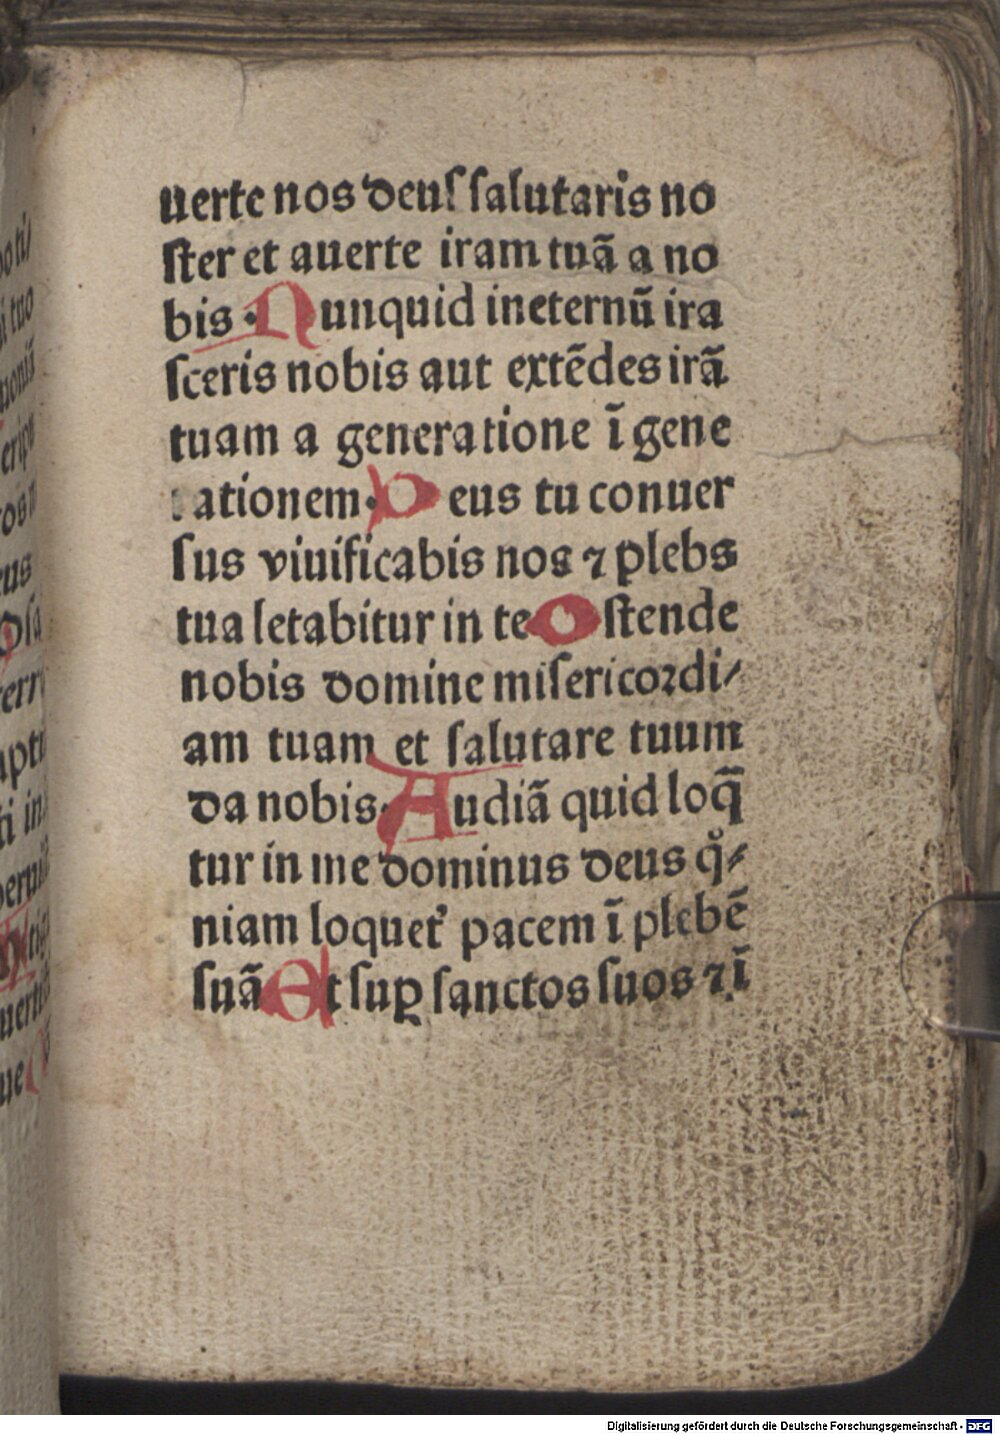 uerte nos deuſ ſalutaris no
ſter et auerte iram tuã a no
bis · Nunquid ineternũ ira
ſceris nobis aut extẽdes irã
tuam a generatione ĩ gene
rationem · Deus tu conuer
ſus viuificabis nos ⁊ plebs
tua letabitur in te Oſtende
nobis domine miſericoꝛdi/
am tuam et ſalutare tuum
da nobis· Audiã quid loq̃
tur in me dominus deus qͦ/
niam loquet᷑ pacem ĩ plebẽ
ſuã Et ſuꝑ ſanctos ſuos ⁊ ĩ
Digitalisierung gefördert durch die Deutsche Forschungsgemeinschaft - DFG